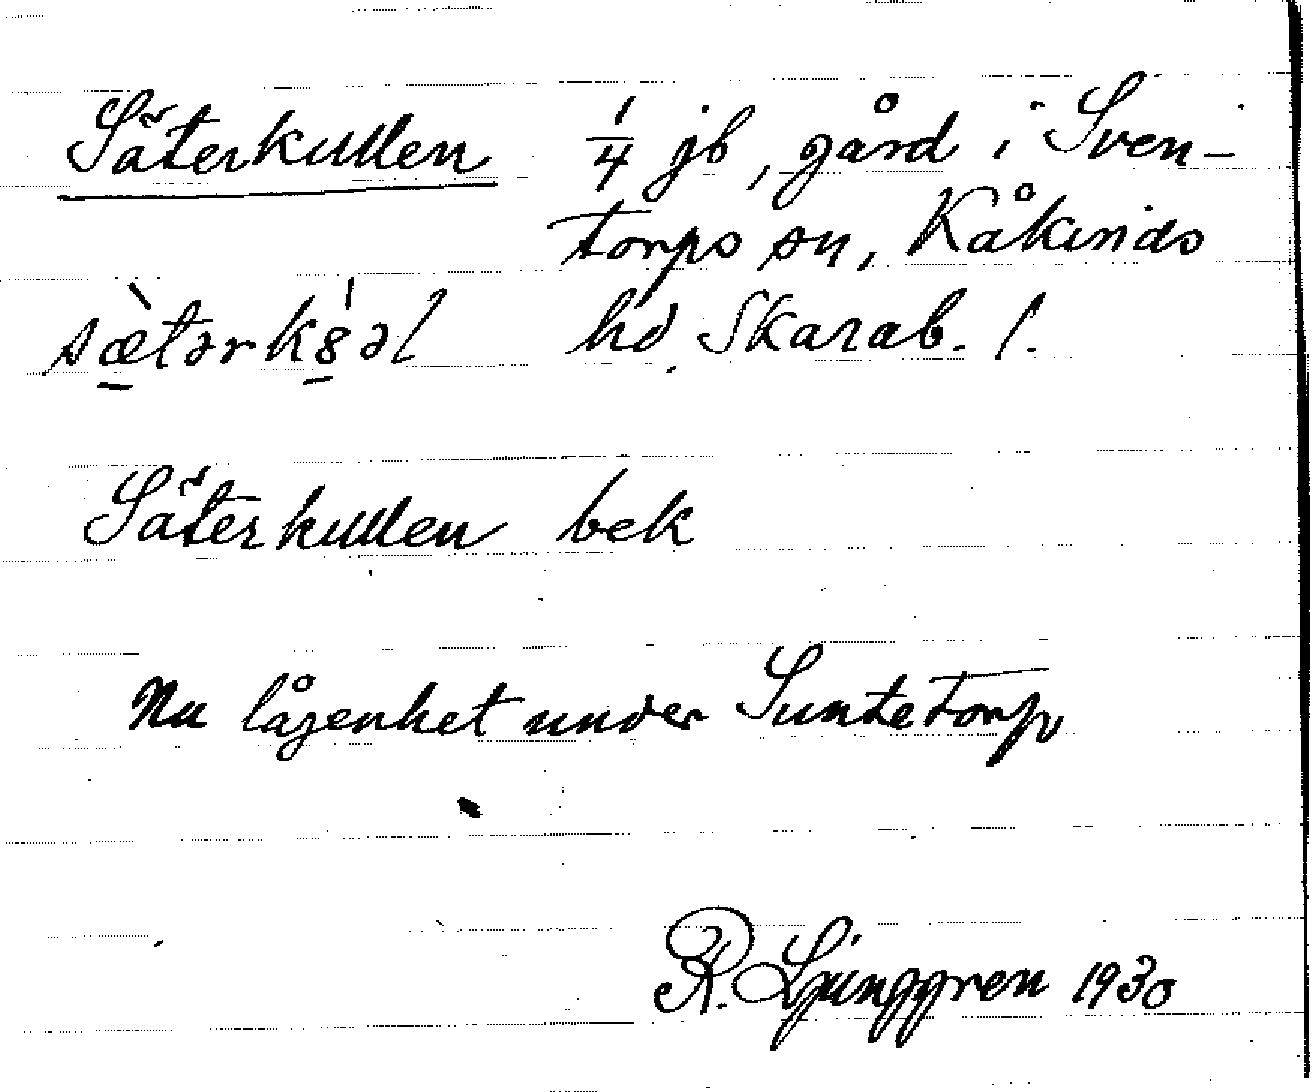 Säterkullen 1/4 jb, gård i Sven-
torps sn, Kåkinds
sæ̀tərk8́əl hd. Skarab. l.
Säterkullen bek
Nu lägenhet under Suntetorp
R. Ljunggren 1930